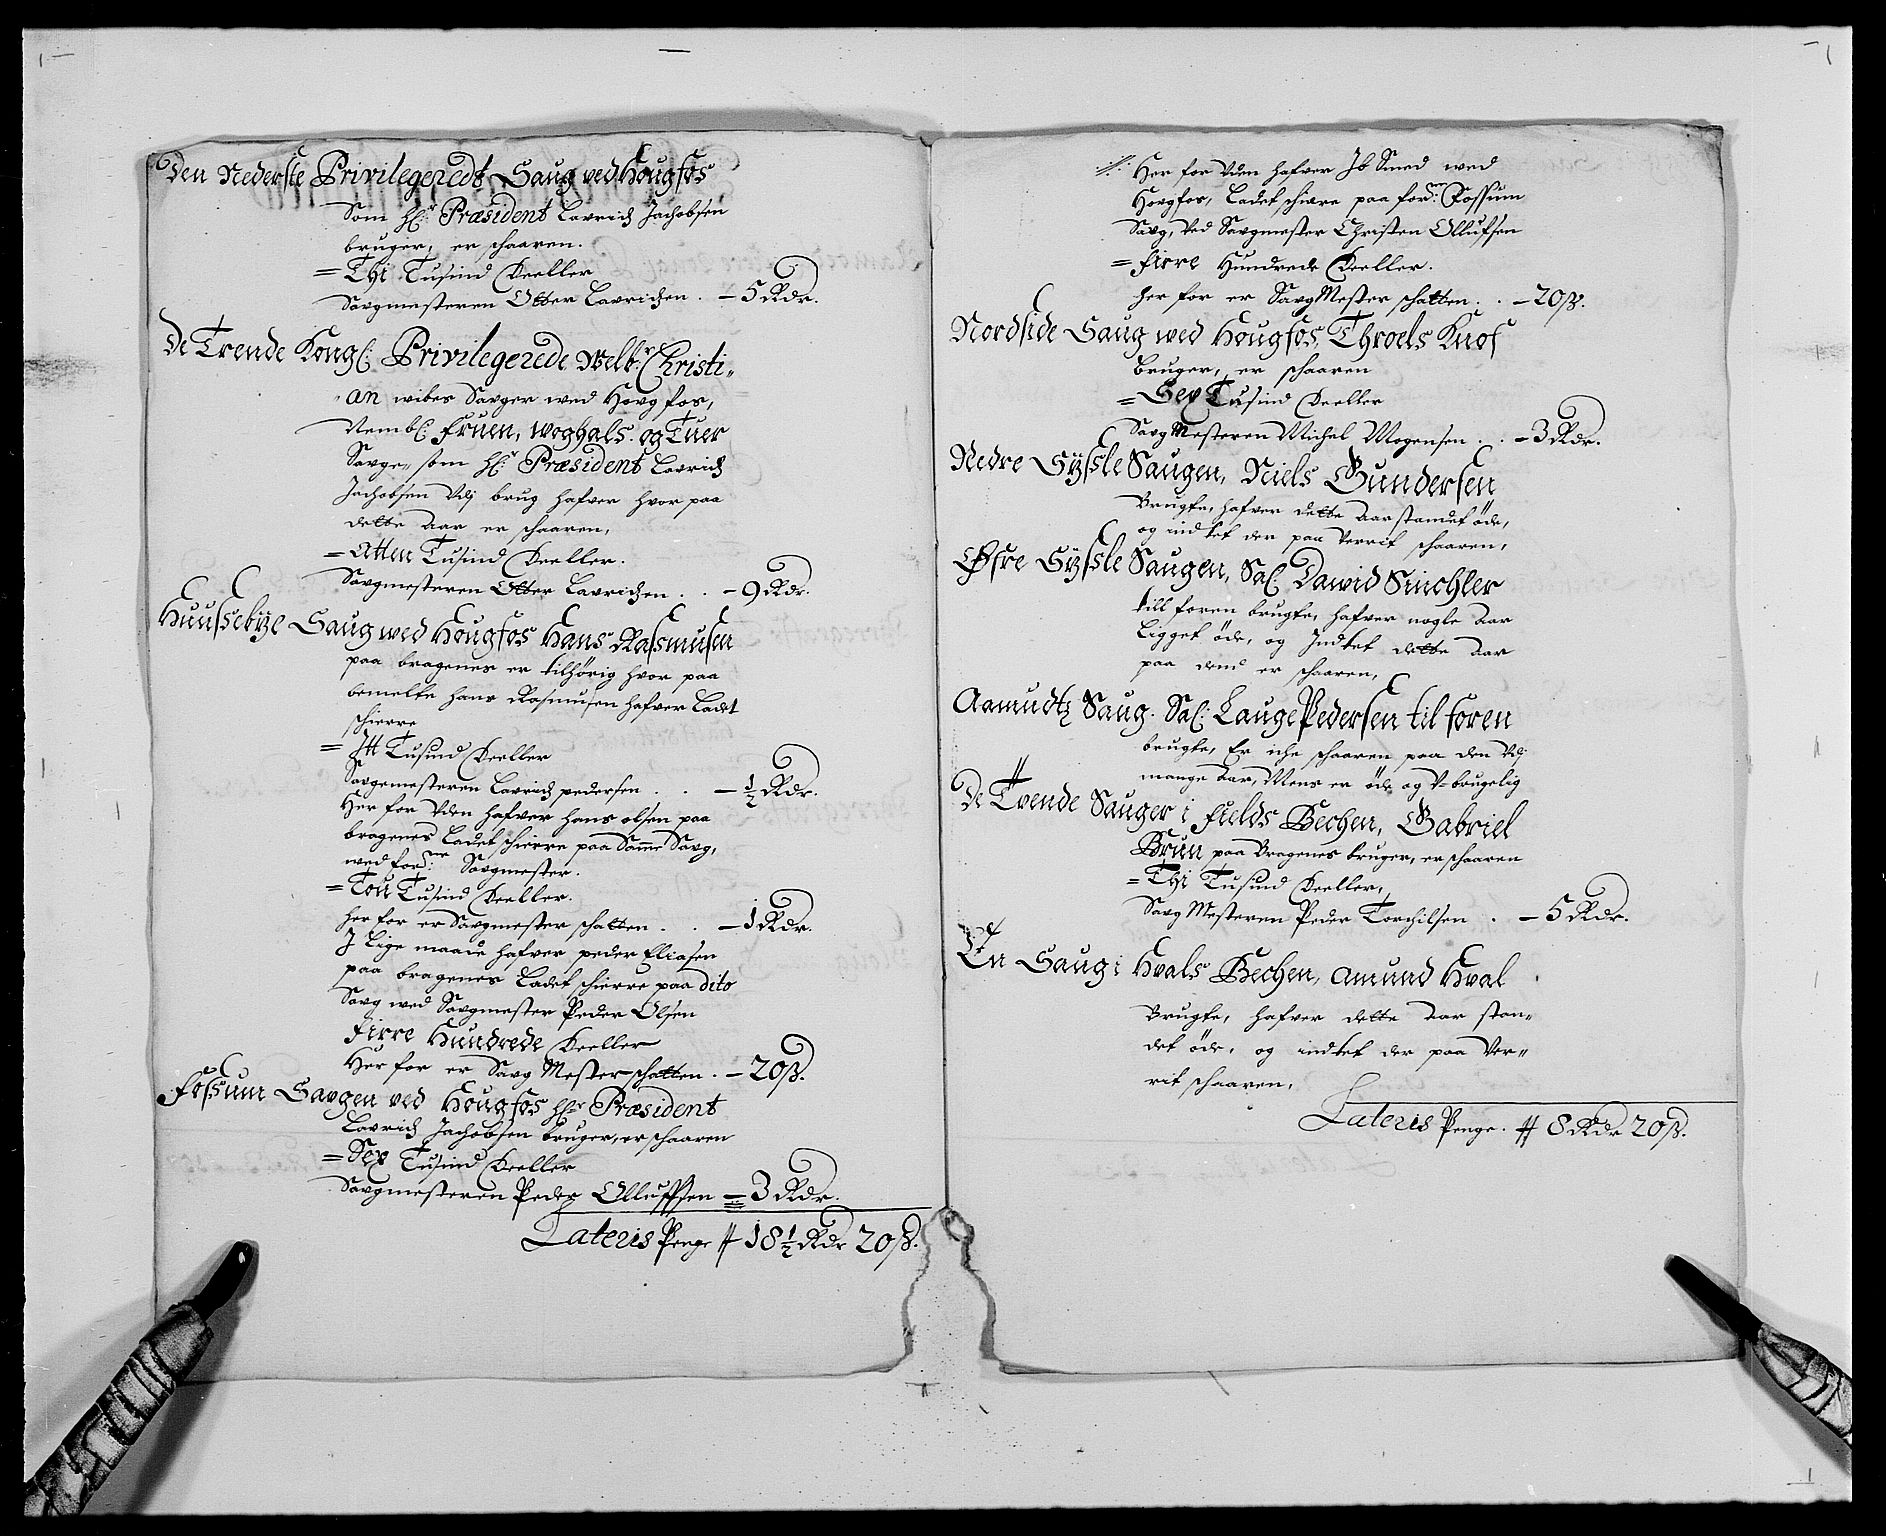 Den Nederste Privilegeredt Saug ved Hougfos
Som hl:r Præsident Lavrich Jachobsen
bruger, er schaaren.
= Thi Tusind Deeller
Savgmesteren Otter Lavrichen . – 5 Rdr.
De Trende Kongl: Privilegerede Welb:r Christi„
„an wibes Savger wed Hovgfos,
Nembl: Fruen, woghals. og Tuer
Savge„ som hl:r Præsident Lavrich
Jachobsen Udj brug hafver hvor paa
dette aar er schaaren,
= Atten Tusind Deeller.
Savgmesteren Otter Lavrichen . . – 9 Rdr.
Huussebÿe Saug wed Hougfos Hans Rassmusen
paa bragenes er tilhörig hvor paa
bemelte hans Rasmusen hafver Ladet
schierre
= Itt Tusind Deeller
Savgemesteren Lavrich pedersen . . – ½ Rdr.
Her for Uden hafver hans olsen paa
bragenes Ladet schierre paa Samme Savg,
wed for:ne Savgmester.
= Tou Tusind Deeller.
her for er Savgmester schatten . . – 1 Rdr.
J Lige maade hafver peder Eliasen
paa bragenes Ladet schierre paa dito
Savg wed Savgmester Peder Olsen
Firre Hundrede Deeller
Her for er Savg Mester schatten . – 20 ß.
Fossum Savgen ved Hougfos hl:r Præsident
Lavrich Jachobsen bruger, er schaaren
= Sex Tusind Deeller
Savgmesteren Peder Olluffsen = 3 Rdr.
Lateris Penge # 18 ½ Rdr 20 ß.
·/· Her for Uden hafver Jb Smed wed
Hovgfos, Ladet schiere paa for:ne Fossum
Savg, Ved Savgmester Christen Ollufsen
= Firre Hundrede Deeller.
her for er Savg Mester schatten . . – 20 ß.
Nordside Saug wed Hougfos, Throels Knof
bruger, er schaaren
= Sex Tusind Deeller
Savg Mesteren Michel Mogensen . . – 3 Rdr.
Nedre Sÿssle Saugen, Niels Gundersen
Brugte, hafver dette aar standet öde,
og indtet der paa Verrit schaaren,
Øfre Sÿssle Saugen, Sal: Dawid Sinchler
till foren brugte, hafver nogle aar
Ligget öde, og Indtet dette aar
paa dend er schaaren,
Aamudtz Saug. Sal: Lauge Pedersen til foren
brugte, Er iche schaaren paa den Udj
mange aar, Mens er öde og U-brugelig
De Tvende Sauger i Fields Bechen, Gabriel
Brun paa Bragenes bruger, er schaaren
= Thi Tusind Deeller,
Savg Mesteren Peder Torchilsen . – 5 Rdr.
En Saug i Hvals Bechen, Amund Hval
Brugte, hafver dette aar stan„
det öde, og indtet der paa Ver„
rit schaaren,
Lateris Penge . # 8 Rdr 20 ß.